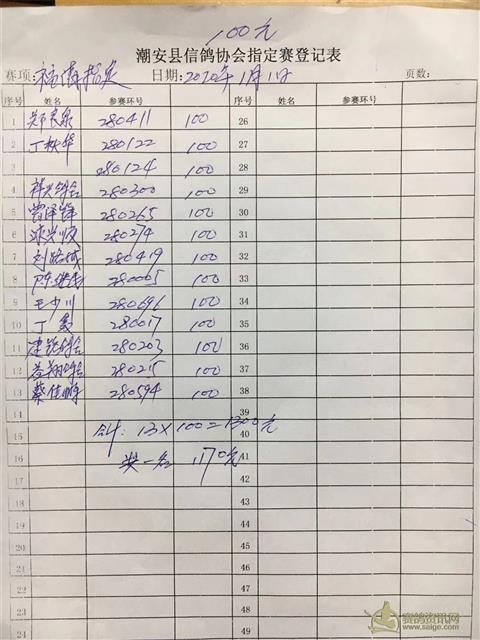 100元
潮安县信鸽协会指定赛登记表
赛项: 福清指定 日期: 2020年1月1日 页数:
序号 姓名 参赛环号 序号 姓名 参赛环号
1 郑良泉 280411 100 26
2 丁秋华 280122 100 27
3 280124 100 28
4 祥兴鸽舍 280300 100 29
5 曾泽锋 280265 100 30
6 280274 100 31
7 280419 100 32
8 280005 100 33
9 王少川 280696 100 34
10 丁 280017 100 35
11 建锐鸽舍 280203 100 36
12 鸽舍 280215 100 37
13 蔡佳 280594 100 38
14 39
15 合计: 13×100=1300元 40
16 奖一名 1170元 41
17 42
18 43
19 44
20 45
21 46
22 47
23 48
24 49
赛鸽资讯网
www.saige.com